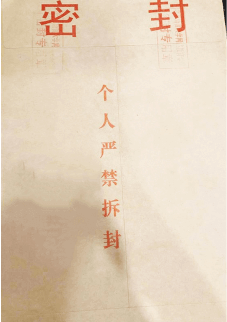 密封
个人严禁拆封